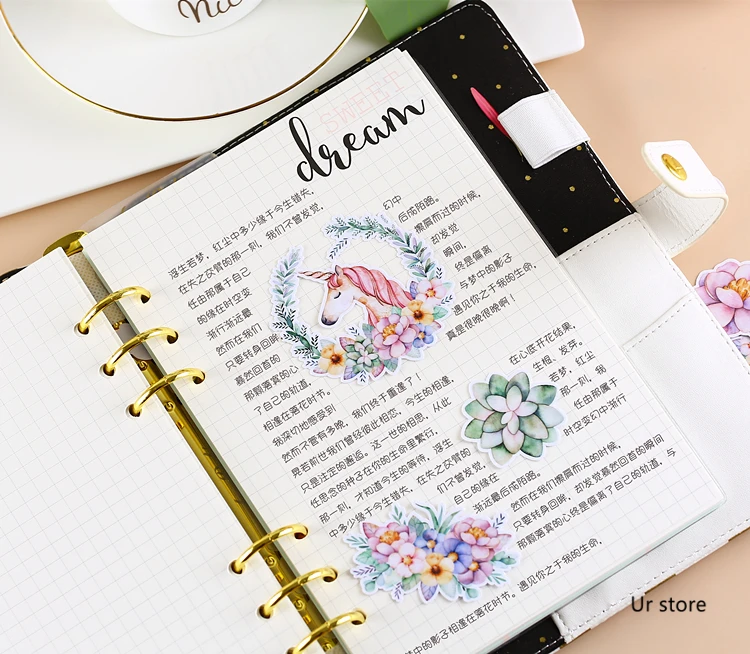 Nice
SWEET
dream
浮生若梦，红尘中多少缘于今生错失，
在失之交臂的那一刻，我们不曾发觉，
任由那属于自己
的缘在时空变
幻中
渐行渐远最
后成陌路。
然而在我们
擦肩而过的时候，
只要转身回眸
却发觉
蓦然回首的
瞬间，
那颗落寞的心
终是偏离
了自己的轨道，
与梦中的影子
相逢在落花时节。
遇见你之于我的生命，
我深切地感受到
真是很晚很晚啊！
然而不管有多晚，我们终于重逢了！
晃若前世我们曾经彼此相恋，今生的相逢，
只是注定的邂逅。这一世的相思，从此
在心底开花结果，
任思念的种子在你的生命里繁衍，
生根、发芽。
那一刻，才知道今生的等待，浮生
若梦，红尘
中多少缘于今生错失，在失之交臂的
那一刻，我
们不曾发觉，
任由那属于
自己的缘在
时空变幻中渐行
渐远最后成陌路。
然而在我们擦肩而过的时候，
只要转身回眸，却发觉蓦然回首的瞬间
那颗落寞的心终是偏离了自己的轨道，与
梦中的影子相逢在落花时节。遇见你之于我的生命，
Ur store